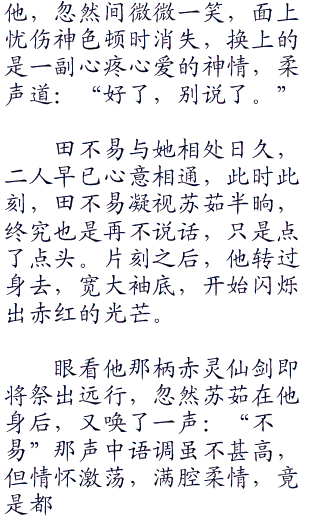 他，忽然间微微一笑，面上
忧伤神色顿时消失，换上的
是一副心疼心爱的神情，柔
声道：“好了，别说了。”
田不易与她相处日久，
二人早已心意相通，此时此
刻，田不易凝视苏茹半晌，
终究也是再不说话，只是点
了点头。片刻之后，他转过
身去，宽大袖底，开始闪烁
出赤红的光芒。
眼看他那柄赤灵仙剑即
将祭出远行，忽然苏茹在他
身后，又唤了一声：“不
易”那声中语调虽不甚高，
但情怀激荡，满腔柔情，竟
是都